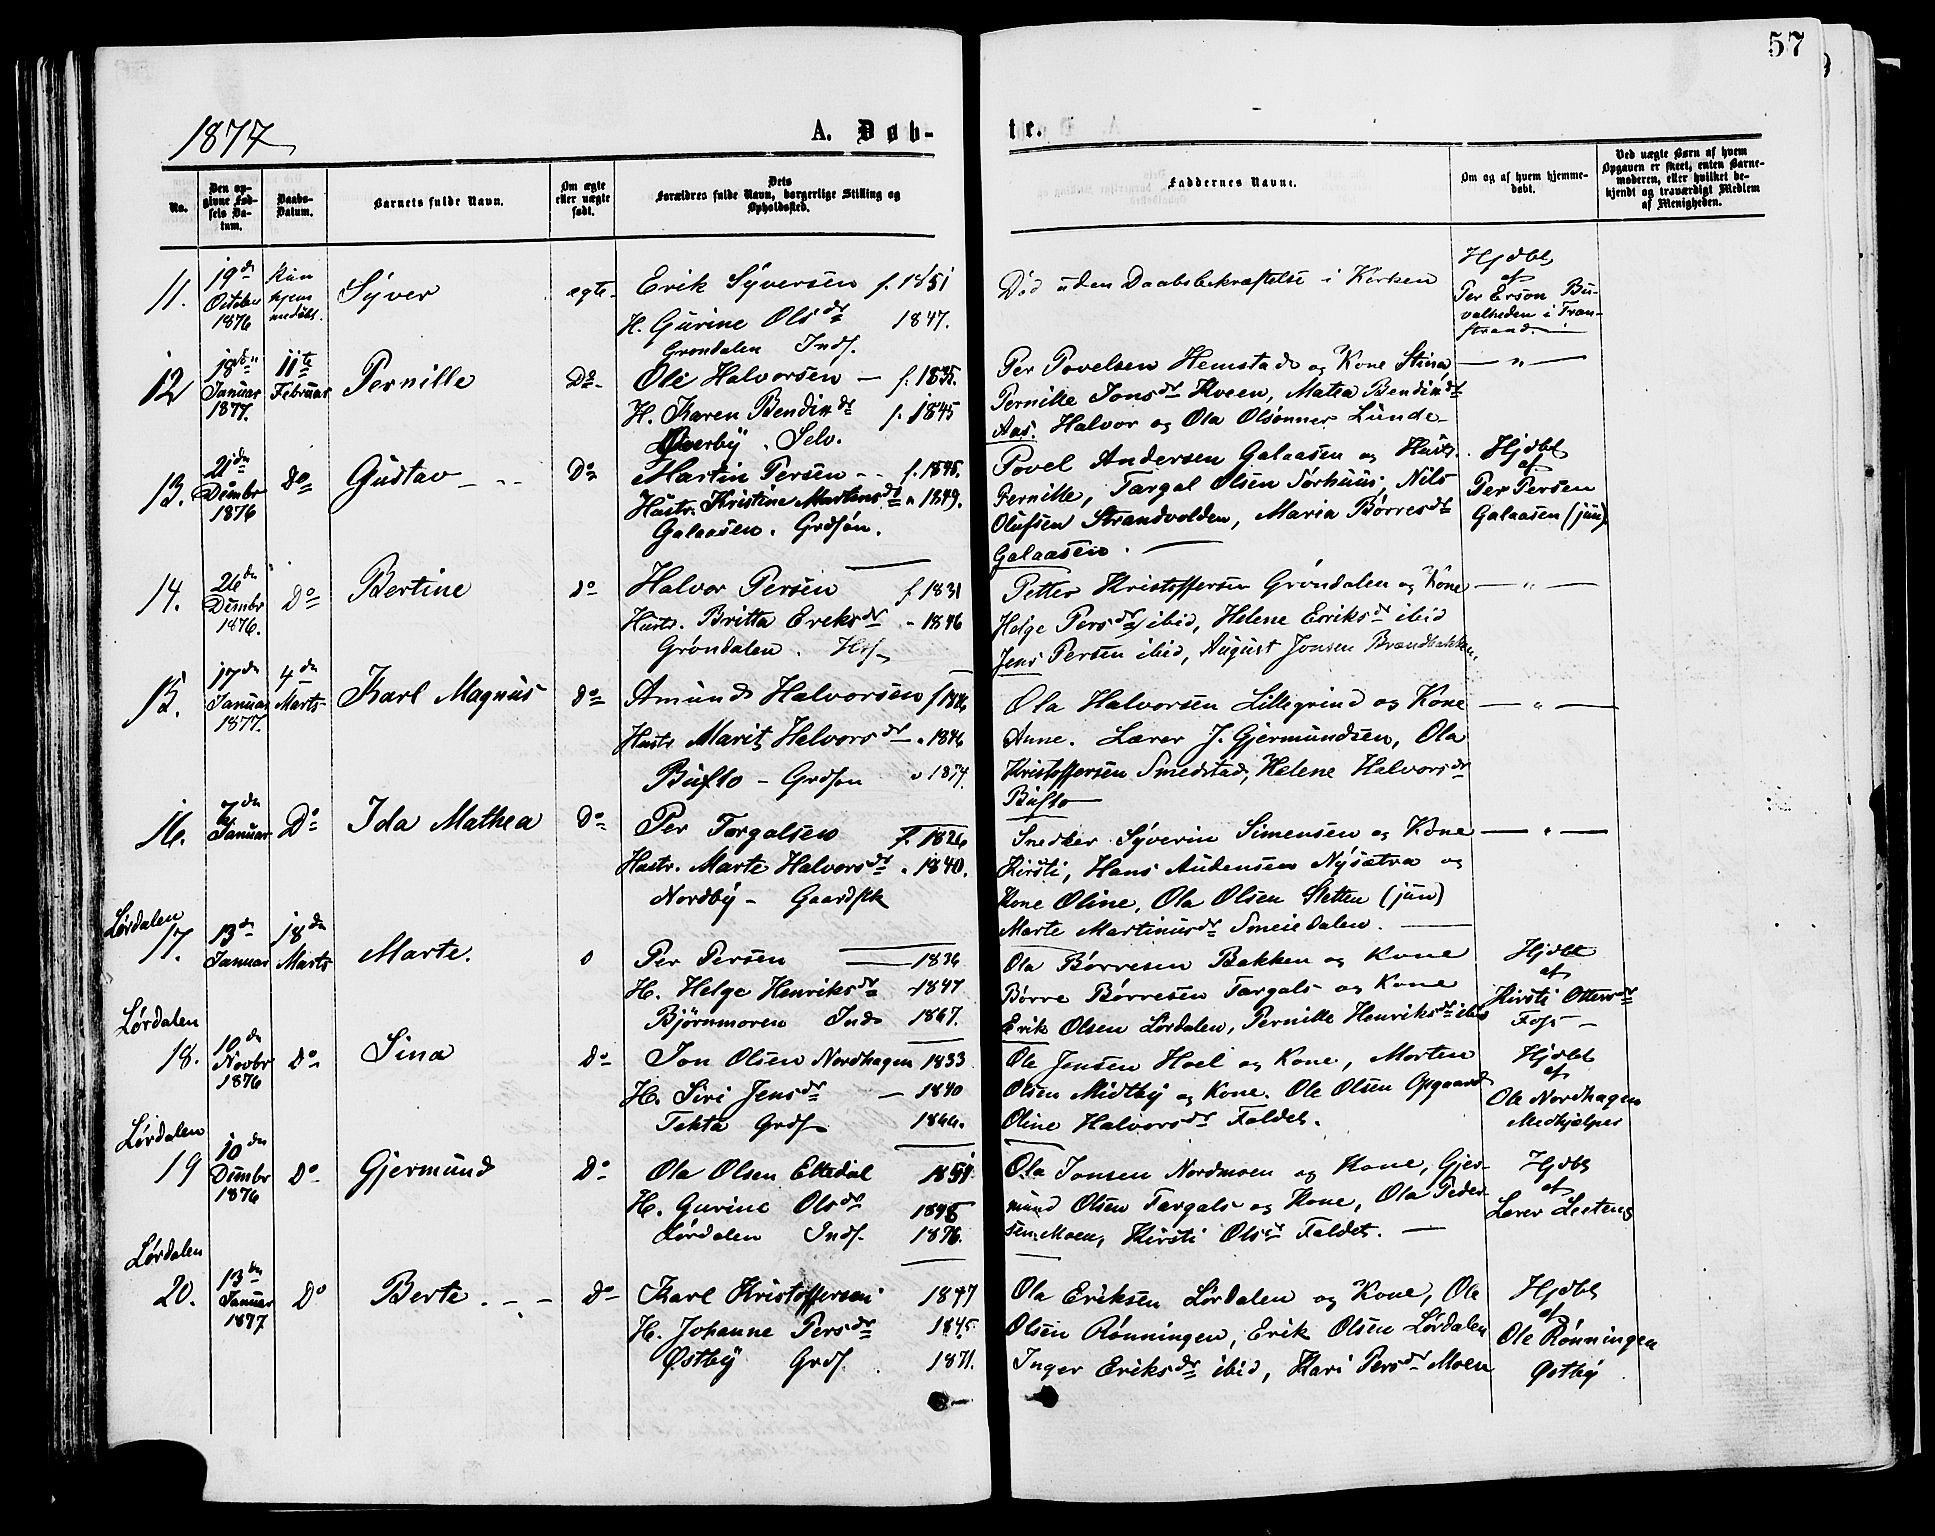 57
1877
A. Døb-
te.
No.
Den opgivne Fødsels Datum.
Daabs-Datum.
Barnets fulde Navn.
Om ægte eller uægte født.
Dets Forældres fulde Navn, borgerlige Stilling og Opholdssted.
Faddernes Navne.
Om og af hvem hjemmedøbt.
Ved uægte Børn af hvem Opgaven er skeet, enten Barnemoderen, eller hvilket bekjendt og troværdigt Medlem af Menigheden.
11. 19de October 1876 Kun hjemmedøbt. Syver ægte-
Erik Syversen f. 1851
H. Gurine Olsdr 1847.
Grøndalen Inds.
Død uden Daabsbekræftelse i Kirken
Hjdbt af Per Erson Buvalheden i Transtrand.
12 18de Januar 1877. 11te Februar Pernille Do-
Ole Halvorsen — f. 1835.
H. Karen Bendixdr f. 1845
Øverby. Selv.
Per Povelsen Hemstad og Kone Stina,
Pernille Jonsdr Kveen, Matea Bendixdr
Aas. Halvor og Ola Olsønner Lunde-
— " —
13. 21de Dcmbr 1876 Do Gustav - - - Do
Martin Persen - - f. 1845.
Hustr. Kristine Martinsdr " 1849.
Galaasen. Grdsøn.
Povel Andersen Galaasen og Hustr.
Pernille, Targal Olsen Sørhuus, Nils
Olufsen Strandvolden, Maria Børresdr
Galaasen. —
Hjdbt af Per Persen Galaasen (jun)
14. 26de Dcmbr 1876. Do Bertine Do
Halvor Persen f. 1831
Hustr. Britta Ereksdr - 1846
Grøndalen. Hsf
Petter Kristoffersen Grøndalen og Kone
Helge Persdr ibid, Helene Eriksdr ibid
Jens Persen ibid, August Jonsen Brændbakken.
— " —
15. 17de Januar 1877. 4de Marts Karl Magnus Do
Amund Halvorsen f 1846
Hustr Marit Halvorsdr " 1846
Buflo - Grdsøn " 1874
Ola Halvorsen Lillegrind og Kone
Anne. Lærer J. Gjermundsen, Ola
Kristoffersen Smedstad, Helene Halvorsdr
Buflo —
— " —
16. 7de Januar Do Ida Mathea Do
Per Targalsen f. 1826
Hustr. Marte Halvorsdr " 1840.
Nordby - Gaardbk
Snedker Syverin Simensen og Kone
Kirsti, Hans Audensen Nysætra og
Kone Oline, Ola Olsen Sletten (jun)
Marte Martinusdr Smeiedalen. —
— " —
Lørdalen
17. 13de Januar 18de Marts Marte. o
Per Persen — 1836
H. Helge Henriksdr - 1847
Bjørnmoren Inds 1867.
Ola Børresen Bakken og Kone
Børre Børresen Targals og Kone
Erik Olsen Lørdalen, Pernille Henriksdr ibid
Hjdbt af Kirsti Ottersdr Foss -
Lørdalen
18. 10de Novbr 1876 Do Sina Do
Jon Olsen Nordhagen 1833
H. Siri Jensdr — 1840
Tekta Grdf 1866.
Ole Jensen Hoel og Kone, Morten
Olsen Midtby og Kone. Ole Olsen Opgaard
Oline Halvorsdr Faldet.
Hjdbt af Ole Nordhagen Medhjælper
Lørdalen
19 10de Dcmbr 1876 Do Gjermund Do
Ola Olsen Eltedal 1851
H. Gurine Olsdr 1848
Lørdalen Inds. 1876.
Ola Jonsen Nordmoen og Kone, Gjer-
mund Olsen Targals og Kone, Ola Peder-
sen Moen, Kirsti Olsdr Faldet. —
Hjdbt af Lærer Leeteng
Lørdalen
20. 13de Januar 1877 Do Berte. - - Do
Karl Kristoffersen 1847
H. Johanne Persdr 1845
Østby Grdf. 1871.
Ola Eriksen Lørdalen og Kone, Ole
Olsen Rønningen, Erik Olsen Lørdalen
Inger Eriksdr ibid, Kari Persdr Moen
Hjdbt af Ole Rønningen Østby